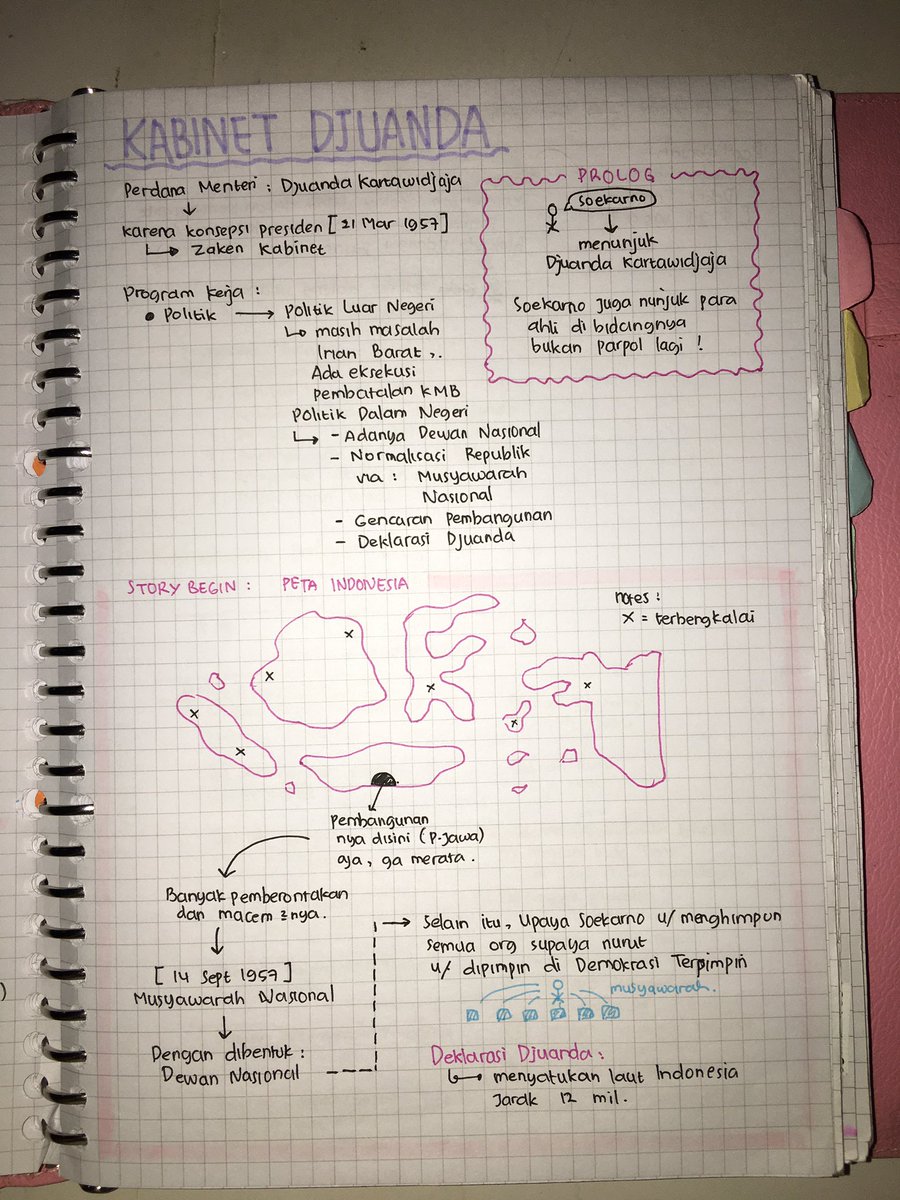 KABINET DJUANDA
Perdana Menteri : Djuanda Kartawidjaja
↓
karena konsepsi presiden [21 Mar 1957]
↳ Zaken Kabinet
PROLOG
Soekarno
↓
menunjuk
Djuanda Kartawidjaja
Soekarno juga nunjuk para
ahli di bidangnya
bukan parpol lagi !
Program kerja :
• Politik → Politik Luar Negeri
↳ masih masalah
Irian Barat ,.
Ada eksekusi
pembatalan KMB
Politik Dalam Negeri
↳ - Adanya Dewan Nasional
- Normalisasi Republik
via : Musyawarah
Nasional
- Gencaran Pembangunan
- Deklarasi Djuanda
STORY BEGIN : PETA INDONESIA
notes :
x = terbengkalai
x
x
x
x
x
x
x
Pembangunan
nya disini (P.Jawa)
aja, ga merata.
Banyak pemberontakan
dan macem2nya.
↓
[14 Sept 1957]
Musyawarah Nasional
↓
Dengan dibentuk :
Dewan Nasional
→ Selain itu, Upaya Soekarno u/ menghimpun
semua org supaya nurut
u/ dipimpin di Demokrasi Terpimpin
musyawarah.
Deklarasi Djuanda :
↳ menyatukan laut Indonesia
Jarak 12 mil.
)